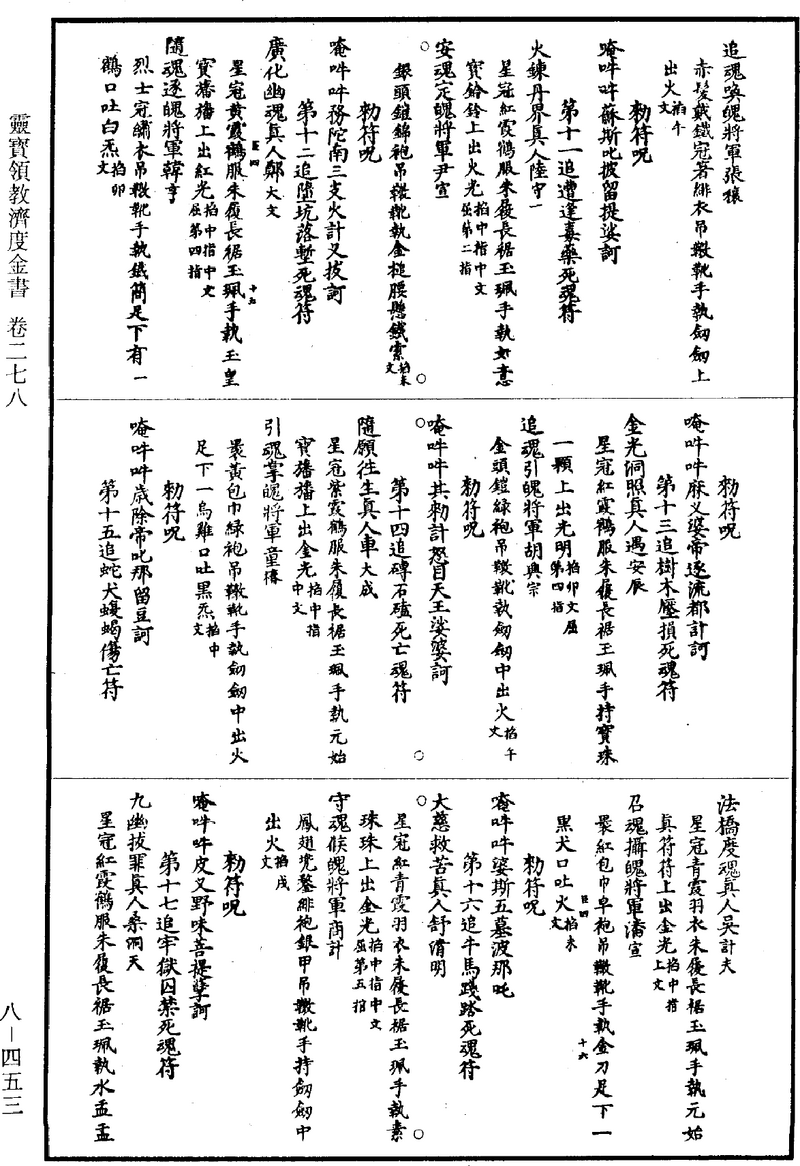 靈寶領教濟度金書　卷二七八
八－四五三
追魂喚魄將軍張積
赤髮戴鐵冠著緋衣吊轍靴手執劒劒上
出火掐午文
勑符呪
唵吽吽蘇斯叱披留提娑訶
第十一追遭逢毒藥死魂符
火鍊丹界真人陸守一
星冠紅霞鶴服朱履長裾玉珮手執如意
寶鈴鈴上出火光掐中指中文屈第二指
安魂定魄將軍尹宣
銀頭鎧錦袍吊轍靴執金槌腰懸鐵索掐未文
勑符呪
唵吽吽務陀南三支火計叉拔訶
第十二追墮坑落塹死魂符
廣化幽魂真人鄭大文
星冠黃霞鶴服朱履長裾玉珮手執玉皇
寶旛旛上出紅光掐中指中文屈第四指
隨魂逐魄將軍韓亨
烈士冠繡衣吊轍靴手執鐵簡足下有一
鶴口吐白炁掐卯文
勑符呪
唵吽吽麻义婆帝逐流都計訶
第十三追樹木壓損死魂符
金光洞照真人遇安辰
星冠紅霞鶴服朱履長裾玉珮手持寶珠
一顆上出光明掐卯文屈第四指
追魂引魄將軍胡興宗
金頭鎧綠袍吊轍靴執劒劒中出火掐午文
勑符呪
唵吽吽其勑計怒目天王娑婆訶
第十四追磚石磕死亡魂符
隨願往生真人車大成
星冠紫霞鶴服朱履長裾玉珮手執元始
寶旛旛上出金光掐中指中文
引魂掌魄將軍童椿
裹黃包巾綠袍吊轍靴手執劒劒中出火
足下一烏雞口吐黑炁掐中文
勑符呪
唵吽吽歲除帝叱那留豆訶
第十五追蛇犬蝮蝎傷亡符
法橋度魂真人吳計夫
星冠青霞羽衣朱履長裾玉珮手執元始
真符符上出金光掐中指上文
召魂攝魄將軍潘宣
裹紅包巾皁袍吊轍靴手執金刀足下一
黑犬口吐火掐未文
勑符呪
唵吽吽婆斯五墓波那吒
第十六追牛馬踐踏死魂符
大慈救苦真人舒清明
星冠紅青霞羽衣朱履長裾玉珮手執素
珠珠上出金光掐中指中文屈第五指
守魂候魄將軍商計
鳳翅兠鍪緋袍銀甲吊轍靴手持劒劒中
出火掐戌文
勑符呪
唵吽吽皮义野咪菩提孽訶
第十七追牢獄囚禁死魂符
九幽拔罪真人桑洞天
星冠紅霞鶴服朱履長裾玉珮執水盂盂